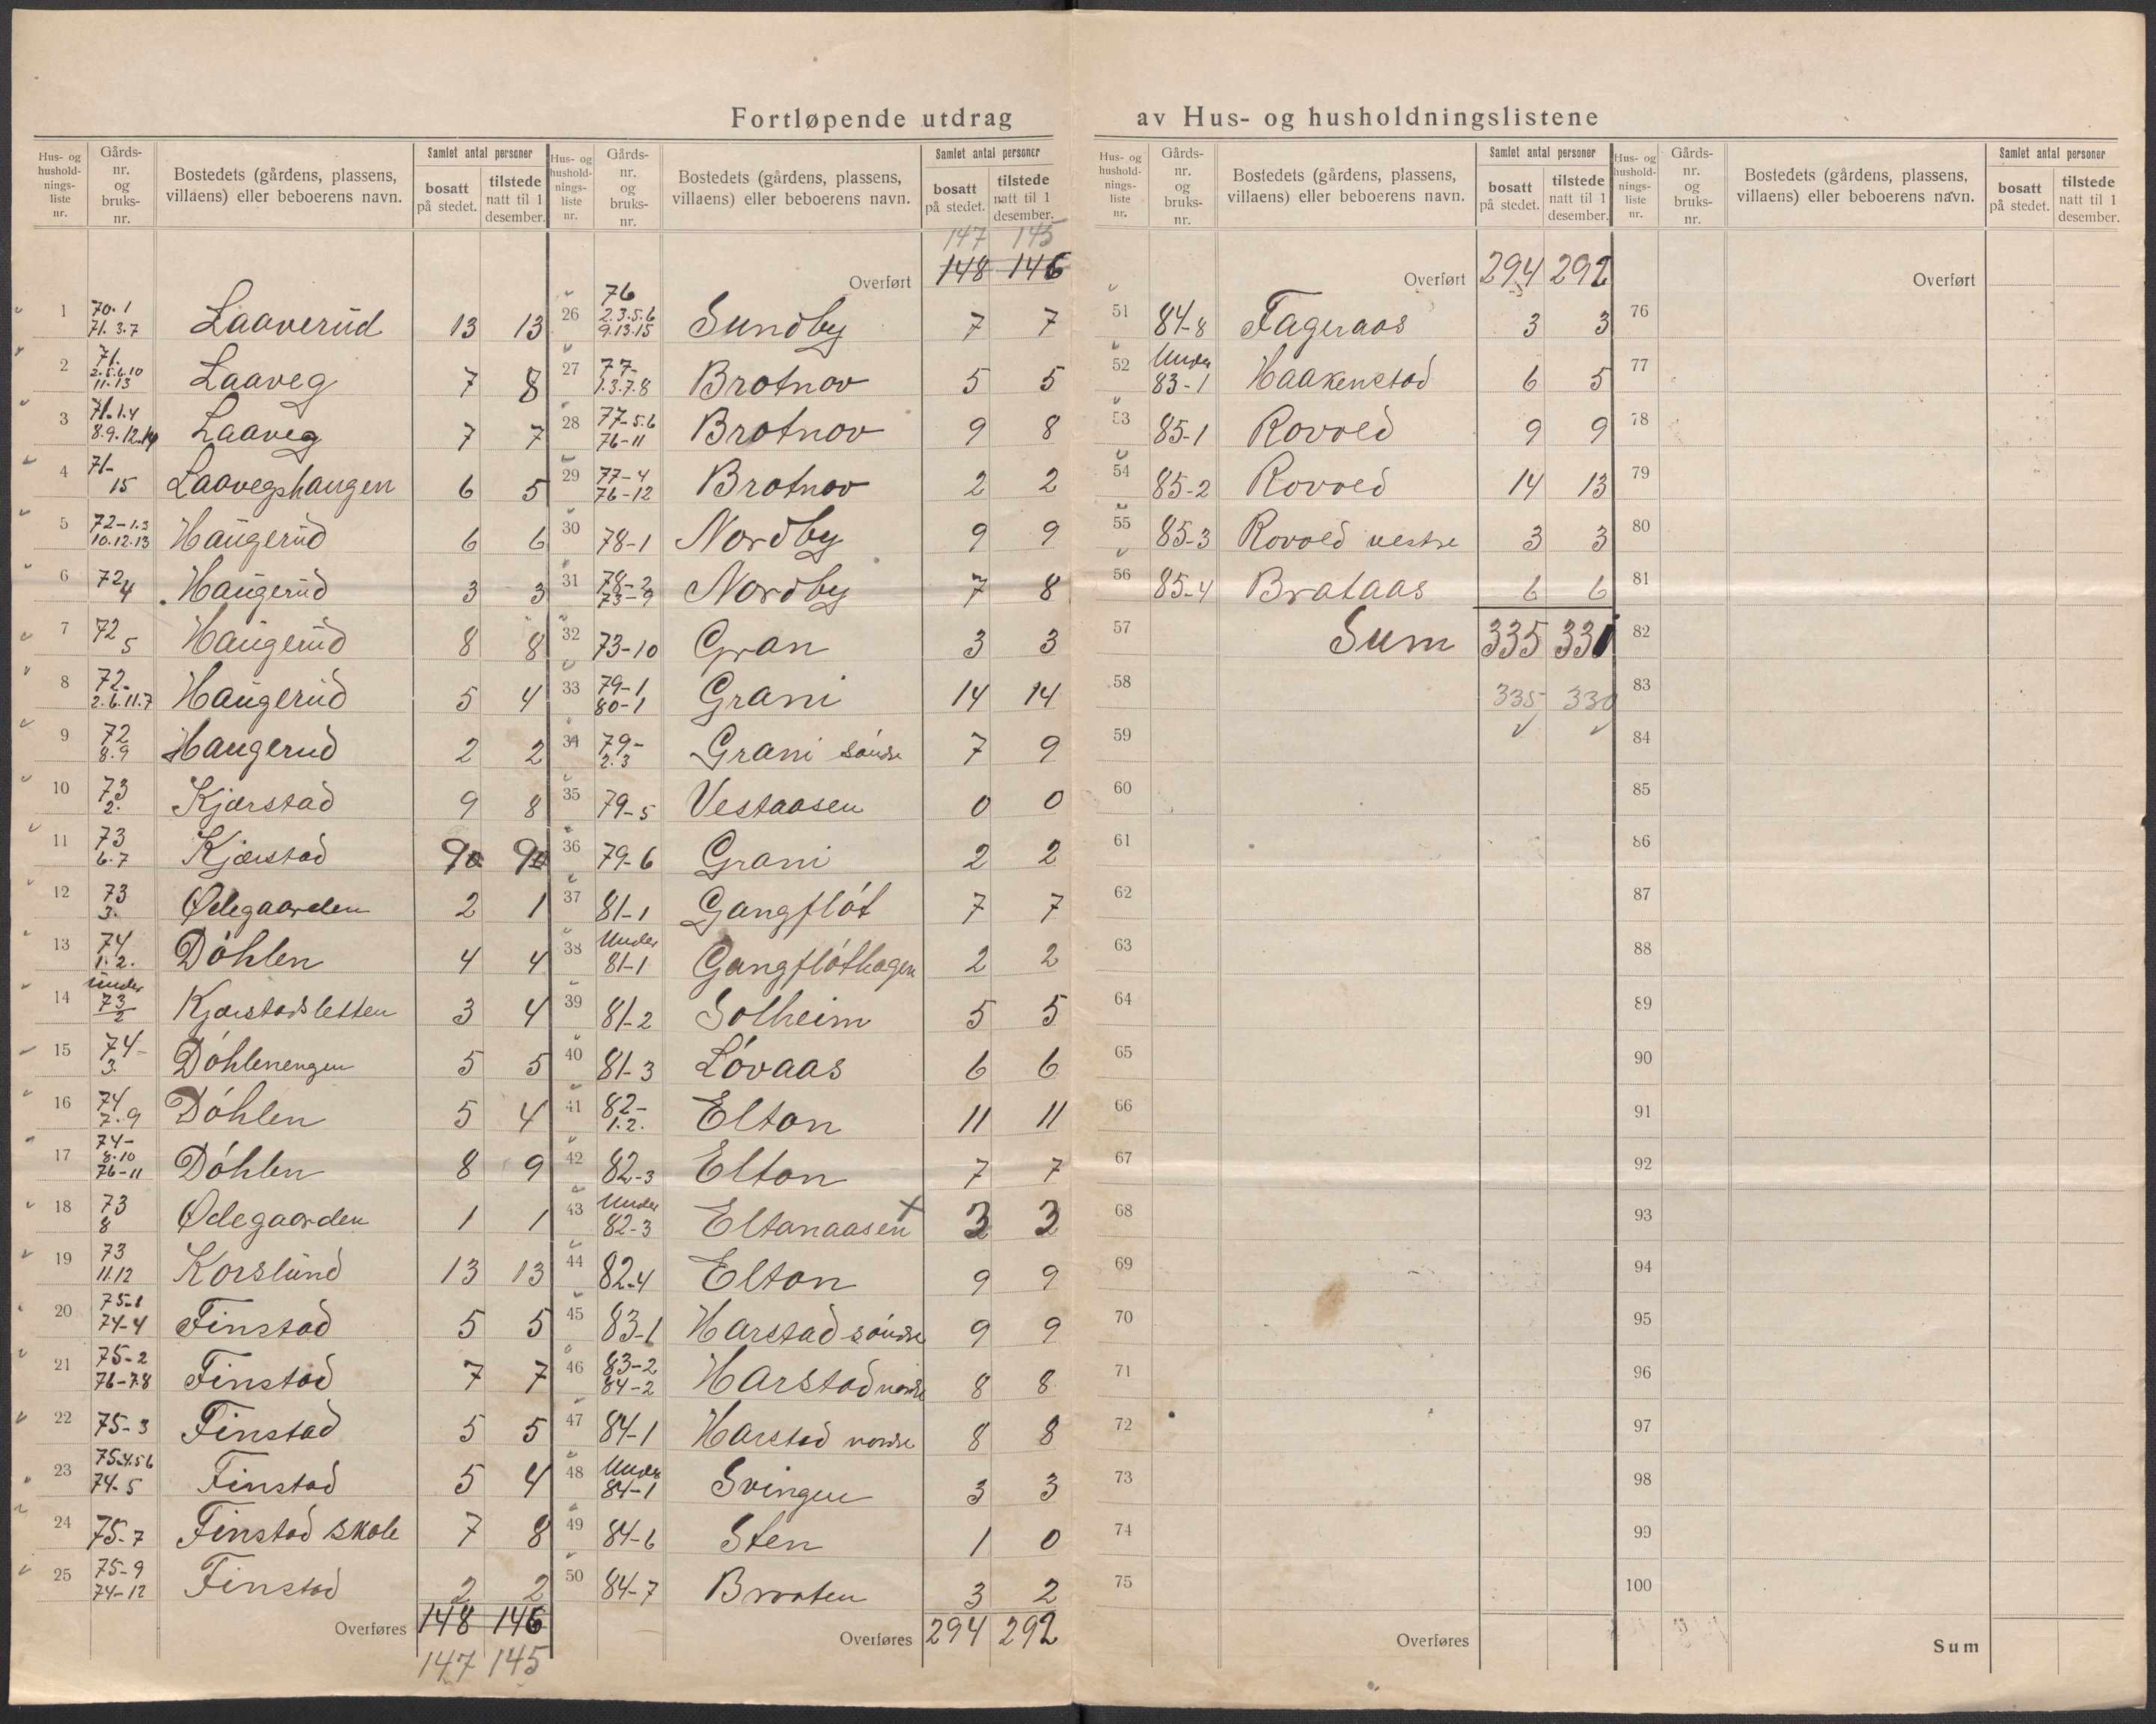 Fortløpende utdrag av Hus- og husholdningslistene
Hus- og hushold-nings-liste nr. | Gårds-nr. og bruks-nr. | Bostedets (gårdens, plassens, villaens) eller beboerens navn. | Samlet antal personer | bosatt på stedet. | tilstede natt til 1 desember.
1 | 70.1 71.3.7 | Laaverud | 13 | 13
2 | 71. 2.5.6.10 11.13 | Laaveg | 7 | 8
3 | 71.1.4 8.9.12.14 | Laaveg | 7 | 7
4 | 71- 15 | Laavegshaugen | 6 | 5
5 | 72-1.3 10.12.13 | Haugerud | 6 | 6
6 | 72 4 | Haugerud | 3 | 3
7 | 72 5 | Haugerud | 8 | 8
8 | 72- 2.6.11.7 | Haugerud | 5 | 4
9 | 72 8.9 | Haugerud | 2 | 2
10 | 73 2. | Kjærstad | 9 | 8
11 | 73 6.7 | Kjærstad | 9 | 9
12 | 73 3. | Ødegaarden | 2 | 1
13 | 74 1.2. | Døhlen | 4 | 4
14 | under 73 2 | Kjærstadsletten | 3 | 4
15 | 74- 3. | Døhlenengen | 5 | 5
16 | 74 7.9 | Døhlen | 5 | 4
17 | 74- 8.10 76-11 | Døhlen | 8 | 9
18 | 73 8 | Ødegaarden | 1 | 1
19 | 73 11.12 | Korslund | 13 | 13
20 | 75-1 74-4 | Finstad | 5 | 5
21 | 75-2 76-7.8 | Finstad | 7 | 7
22 | 75-3 | Finstad | 5 | 5
23 | 75-4.5 6 74-5 | Finstad | 5 | 4
24 | 75-7 | Finstad skole | 7 | 8
25 | 75-9 74-12 | Finstad | 2 | 2
Overføres | 148 | 146
147 | 145
Hus- og hushold-nings-liste nr. | Gårds-nr. og bruks-nr. | Bostedets (gårdens, plassens, villaens) eller beboerens navn. | Samlet antal personer | bosatt på stedet. | tilstede natt til 1 desember.
147 | 145
Overført | 148 | 146
26 | 76 2.3.5.6 9.13.15 | Sundby | 7 | 7
27 | 77- 1.3.7.8 | Brotnov | 5 | 5
28 | 77-5.6 76-11 | Brotnov | 9 | 8
29 | 77-4 76-12 | Brotnov | 2 | 2
30 | 78-1 | Nordby | 9 | 9
31 | 78-2 73-9 | Nordby | 7 | 8
32 | 73-10 | Gran | 3 | 3
33 | 79-1 80-1 | Grani | 14 | 14
34 | 79- 2.3 | Grani søndre | 7 | 9
35 | 79-5 | Vestaasen | 0 | 0
36 | 79-6 | Grani | 2 | 2
37 | 81-1 | Gangfløt | 7 | 7
38 | Under 81-1 | Gangfløthagen | 2 | 2
39 | 81-2 | Solheim | 5 | 5
40 | 81-3 | Løvaas | 6 | 6
41 | 82- 1.2. | Elton | 11 | 11
42 | 82-3 | Elton | 7 | 7
43 | Under 82-3 | Eltonaasen x | 3 | 3
44 | 82-4 | Elton | 9 | 9
45 | 83-1 | Harstad søndre | 9 | 9
46 | 83-2 84-2 | Harstad nordre | 8 | 8
47 | 84-1 | Harstad nordre | 8 | 8
48 | Under 84-1 | Svingen | 3 | 3
49 | 84-6 | Sten | 1 | 0
50 | 84-7 | Braaten | 3 | 2
Overføres | 294 | 292
Hus- og hushold-nings-liste nr. | Gårds-nr. og bruks-nr. | Bostedets (gårdens, plassens, villaens) eller beboerens navn. | Samlet antal personer | bosatt på stedet. | tilstede natt til 1 desember.
Overført | 294 | 292
51 | 84-8 | Fageraas | 3 | 3
52 | Under 83-1 | Haakenstad | 6 | 5
53 | 85-1 | Rovold | 9 | 9
54 | 85-2 | Rovold | 14 | 13
55 | 85-3 | Rovold vestre | 3 | 3
56 | 85-4 | Brataas | 6 | 6
57 | Sum | 335 | 331
58 | 335 | 330
59
60
61
62
63
64
65
66
67
68
69
70
71
72
73
74
75
Overføres
Hus- og hushold-nings-liste nr. | Gårds-nr. og bruks-nr. | Bostedets (gårdens, plassens, villaens) eller beboerens navn. | Samlet antal personer | bosatt på stedet. | tilstede natt til 1 desember.
Overført
76
77
78
79
80
81
82
83
84
85
86
87
88
89
90
91
92
93
94
95
96
97
98
99
100
Sum